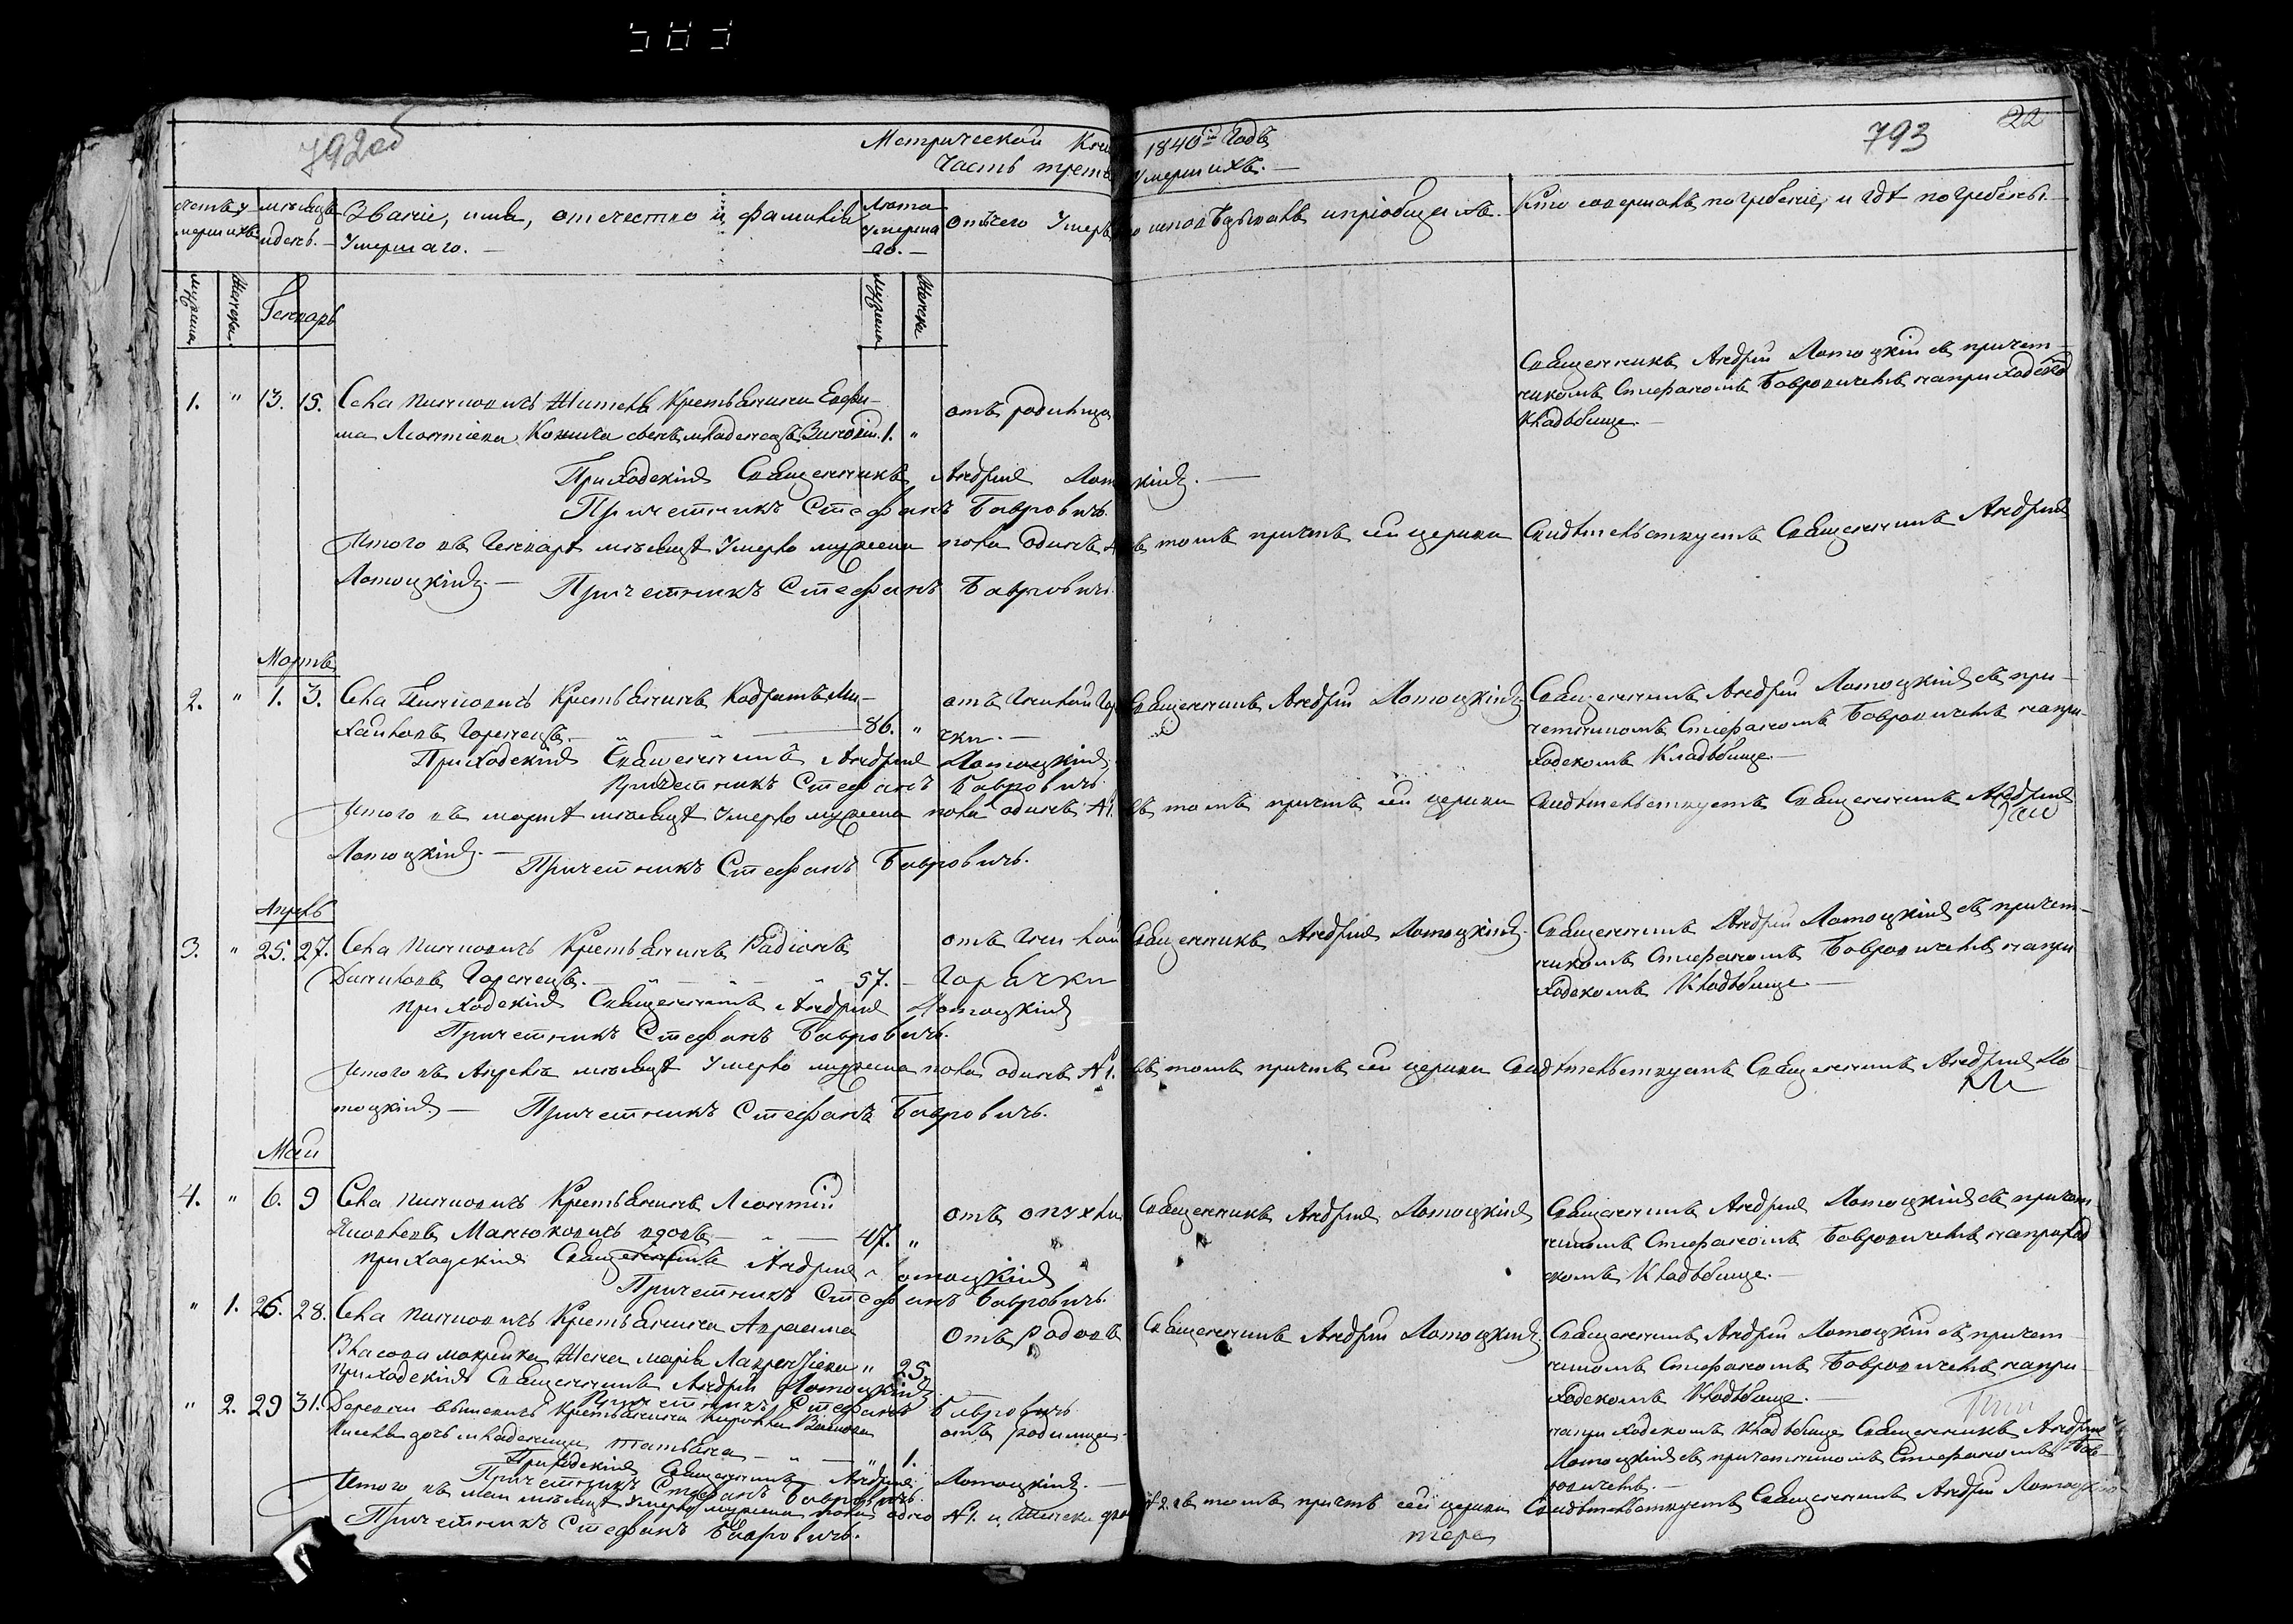 792об
Метрической Кни 1840й Годъ
Часть треть Умершихъ.
793
22
Счетъ умершихъ
мѣсяцъ и день.
Званіе, имя, отечество и фамилія
Умершаго.
Лѣта умершаго.
Отъ чего Умеръ
исповѣдывалъ и пріобщалъ.
Кто совершалъ погребеніе, и гдѣ погребены.
мужеска
женска
Генварь
мужеска
женска
1. " 13. 15. Села Пинковичъ Жителя Крестьянина Евфи-
ма Леонтіева сынъ младенецъ 1. "
отъ родимца
Священникъ Андрей Лотоцкій съ причет-
никомъ Стефаномъ Бавровичемъ на приходско
кладбище.
Приходскій Священникъ Андрей Лотоцкій.
Причетникъ Стефанъ Бавровичъ.
Итого въ Генварѣ мѣсяцѣ Умерло мужеска пола одинъ въ томъ причтъ сей церкви Свидѣтельствуетъ Священникъ Андрей
Лотоцкій. Причетникъ Стефанъ Бавровичъ
Мартъ
2. " 1. 3. Села Пинковичъ Крестьянинъ Кодратъ Ми-
хайловъ Горенецъ. 86. "
отъ сильной Гор
чки.
Священникъ Андрей Лотоцкій
Священникъ Андрей Лотоцкій съ при-
четникомъ Стефаномъ Бавровичемъ на при-
ходскомъ Кладбище.
Приходскій Священникъ Андрей Лотоцкій
Причетникъ Стефанъ Бавровичъ
Итого въ мартѣ мѣсяцѣ Умерло мужеска пола одинъ №1. въ томъ причтъ сей церкви Свидѣтельствуетъ Священникъ Андрей
Лотоцкій. Причетникъ Стефанъ Бавровичъ.
Апрель
3. " 25. 27. Села Пинковичъ Крестьянинъ Радіонъ
Даниловъ Горенецъ. 57.
отъ сильной
Горячки
Священникъ Андрей Лотоцкій.
Священникъ Андрей Лотоцкій съ причет-
никомъ Стефаномъ Бавровичемъ на при
ходскомъ Кладбище
Приходскій Священникъ Андрей Лотоцкій
Причетникъ Стефанъ Бавровичъ.
Итого въ Апрелѣ мѣсяцѣ Умерло мужеска пола одинъ №1. въ томъ причтъ сей церкви Свидѣтельствуетъ Священникъ Андрей Ло-
тоцкій. Причетникъ Стефанъ Бавровичъ.
Май
4. " 6. 9 Села Пинковичъ Крестьянинъ Леонтій
Яковлевъ Манюковичъ вдовъ 47. "
отъ опухли
Священникъ Андрей Лотоцкій
Священникъ Андрей Лотоцкій съ причет
никомъ Стефаномъ Бавровичемъ на приход
скомъ Кладбище.
Приходскій Священникъ Андрей Лотоцкій
Причетникъ Стефанъ Бавровичъ.
" 1. 26. 28. Села Пинковичъ Крестьянина
жена Марія " 25.
Отъ Родовъ
Священникъ Андрей Лотоцкій.
Священникъ Андрей Лотоцкій съ причет-
никомъ Стефаномъ Бавровичемъ на при-
ходскомъ Кладбище.
Приходскій Священникъ Андрей Лотоцкій
Причетникъ Стефанъ Бавровичъ
" 2. 29 31. Деревни Крестьянина
дочь младеница Татьяна " 1.
отъ родимца
на приходскомъ Кладбище Священникъ Андрей
Лотоцкій съ причетникомъ Стефаномъ Бав-
ровичемъ.
Приходскій Священникъ Андрей Лотоцкій.
Причетникъ Стефанъ Бавровичъ.
Итого въ маи мѣсяцѣ Умерло мужеска пола одно №1. и женска №2. въ томъ причтъ сей церкви Свидѣтельствуетъ Священникъ Андрей Лотоцкій
Причетникъ Стефанъ Бавровичъ.